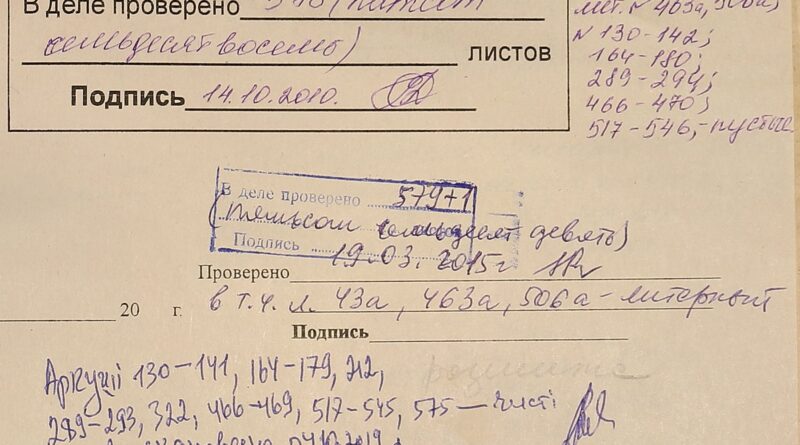 В деле проверено 578 (пятьсот
семьдесят восемь) листов
Подпись 14.10.2010.
лит. N 463а, 506а;
N 130-142;
164-180;
289-294;
466-470;
517-546,-пустые
В деле проверено 579+1
(пятьсот семьдесят девять)
Подпись 19.03.2015г
Проверено
в т.ч. л. 43а, 463а, 506а - литерный
20 г.
Подпись
Аркуші 130-141, 164-179, 212,
289-293, 322, 466-469, 517-545, 575 - чисті
04.10.2019 г